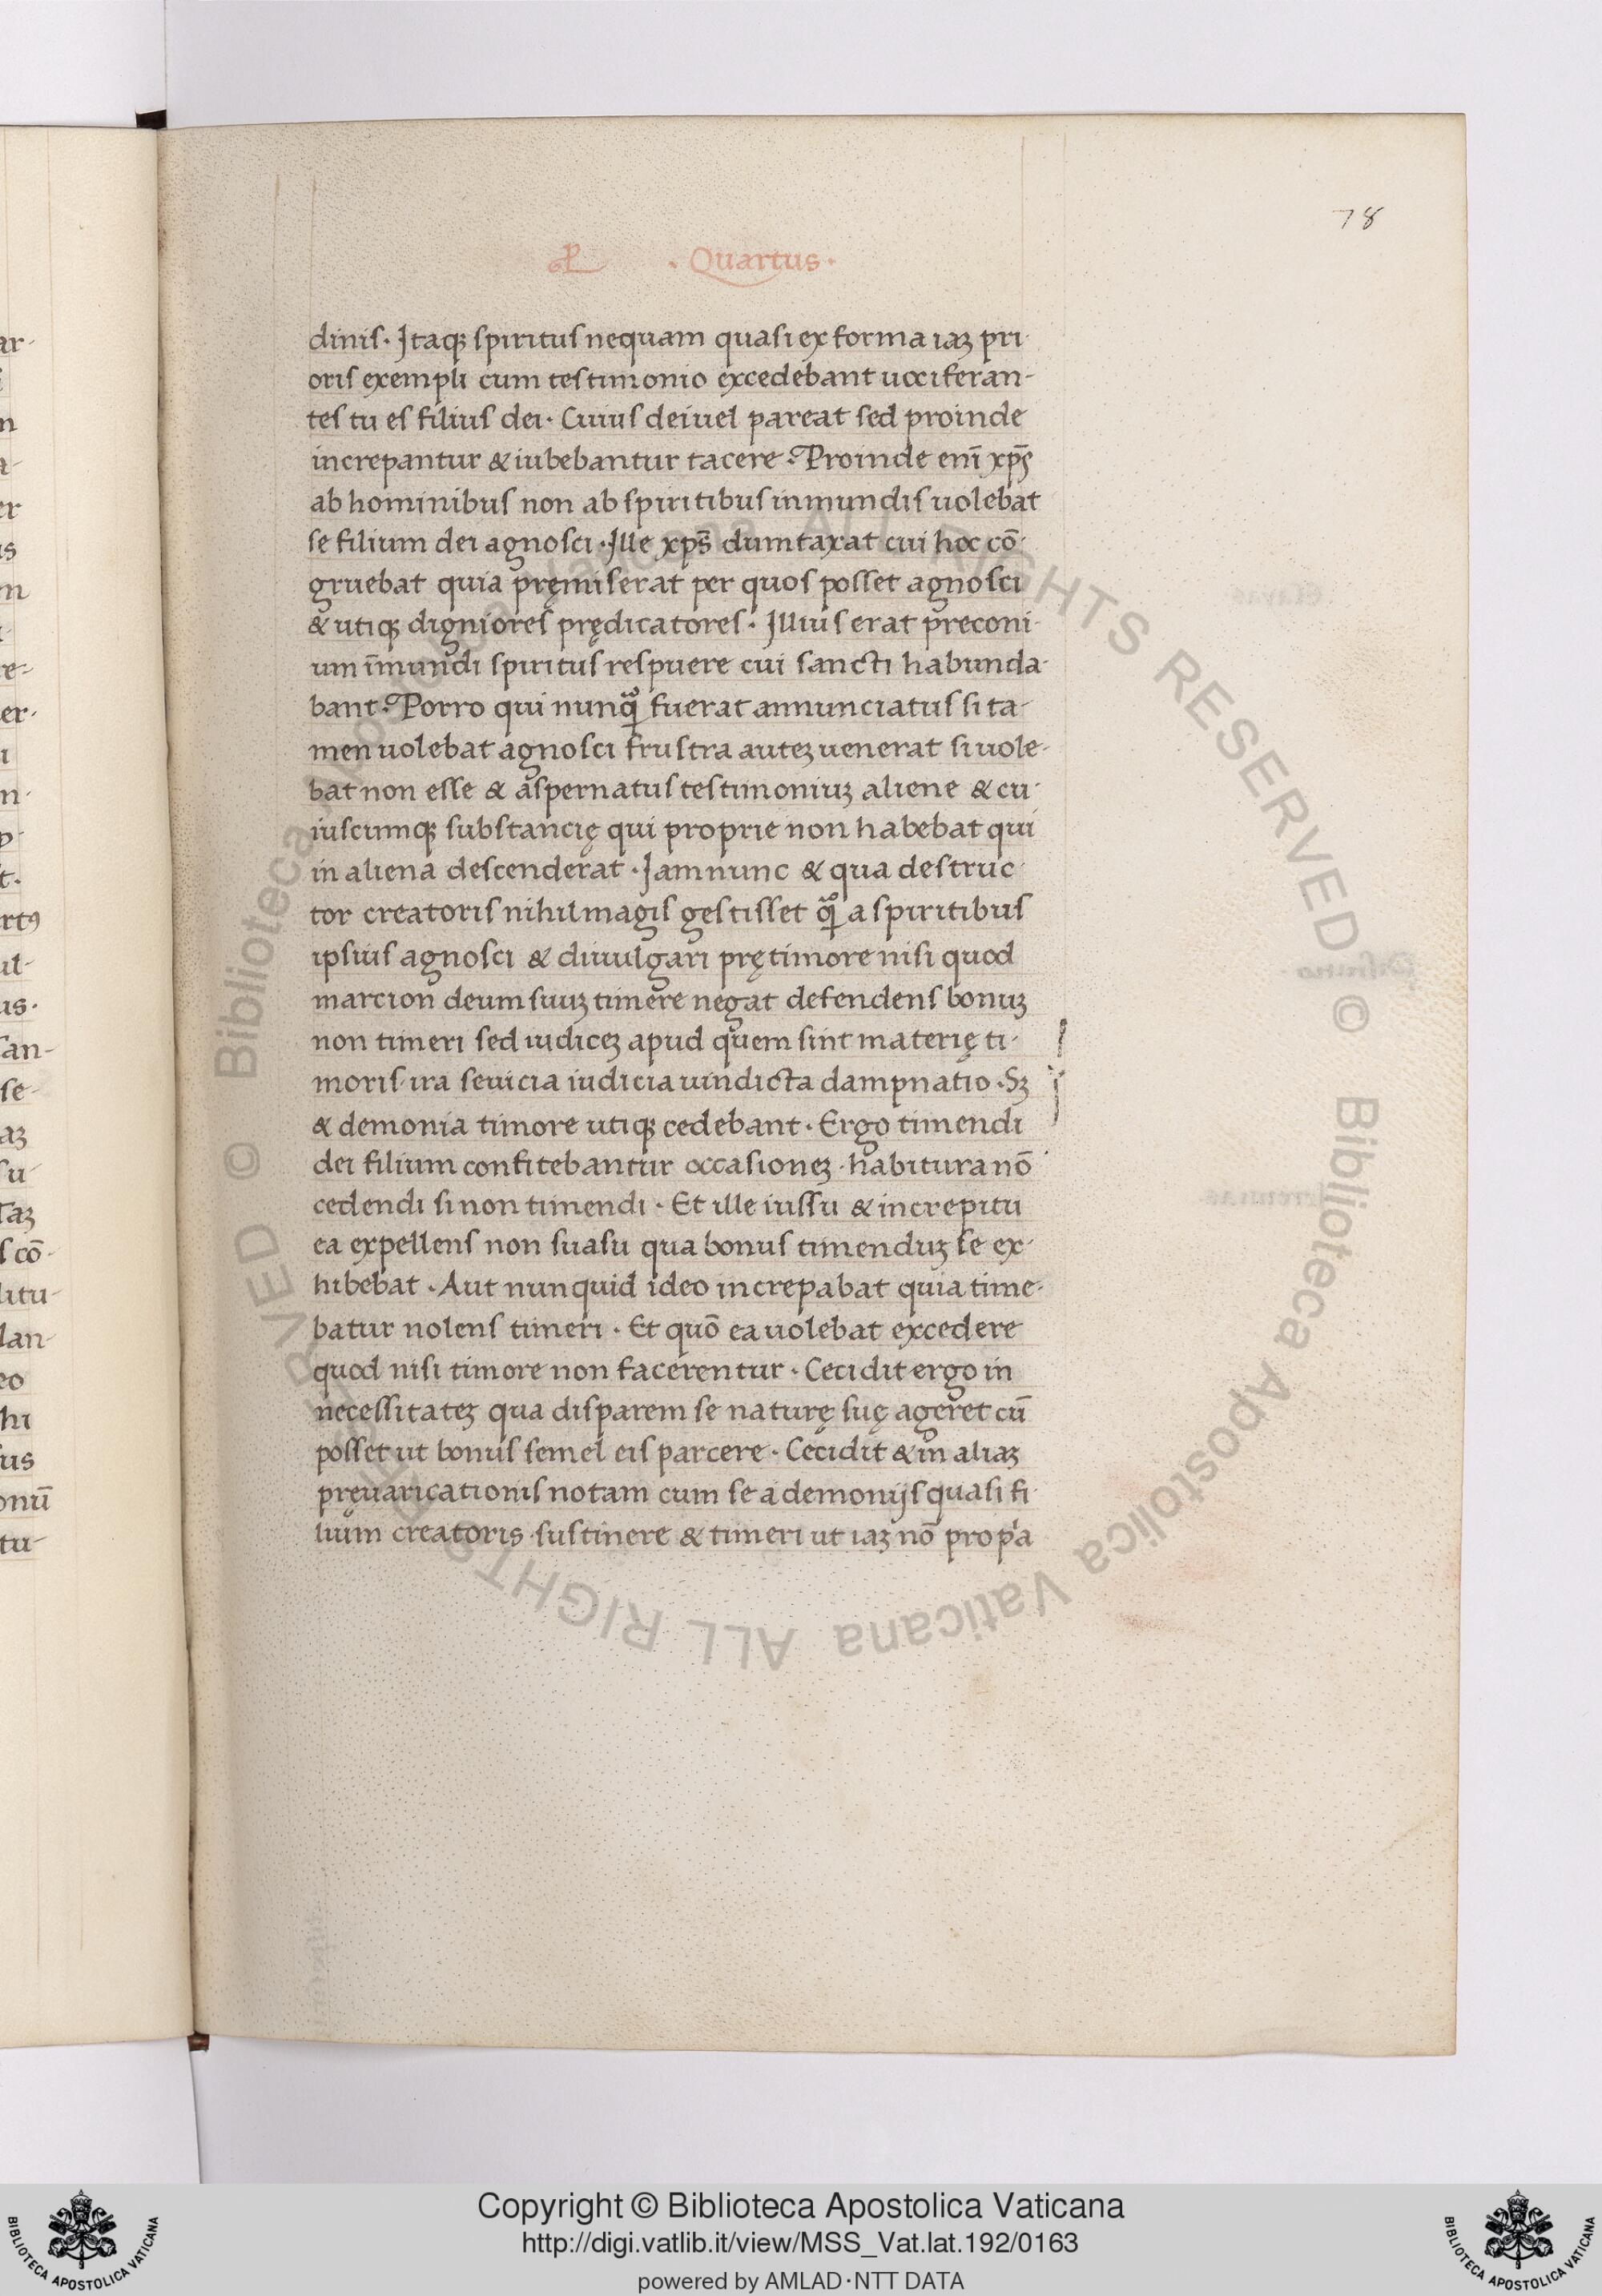 78
· Quartus ·
dinis · Itaqꝫ spiritus nequam quasi ex forma iaꝫ pri-
oris exempli cum testimonio excedebant uociferan-
tes tu es filius dei · Cuius dei uel pareat sed proinde
increpantur & iubebantur tacere · Proinde enī xp̄s
ab hominibus non ab spiritibus inmundis uolebat
se filium dei agnosci · Ille xp̄s dumtaxat cui hoc cō-
gruebat quia pręmiserat per quos posset agnosci
& utiqꝫ digniores prędicatores · Illius erat preconi-
um īmundi spiritus respuere cui sancti habunda-
bant · Porro qui nunqͣ̊ fuerat annunciatus si ta-
men uolebat agnosci frustra auteꝫ uenerat si uole-
bat non esse & aspernatus testimoniuꝫ aliene & cu-
iuscumqꝫ substancię qui proprie non habebat qui
in aliena descenderat · Iam nunc & qua destruc-
tor creatoris nihil magis gestisset qͣ̊ a spiritibus
ipsius agnosci & diuulgari prę timore nisi quod
marcion deum suuꝫ timere negat defendens bonuꝫ
non timeri sed iudiceꝫ apud quem sint materię ti-
moris · ira seuicia iudicia uindicta dampnatio · Sꝫ
& demonia timore utiqꝫ cedebant · Ergo timendi
dei filium confitebantur occasioneꝫ · habitura nō
cedendi si non timendi · Et ille iussu & increpitu
ea expellens non suasu qua bonus timenduꝫ se ex-
hibebat · Aut nunquid ideo increpabat quia time-
batur nolens timeri · Et quō ea uolebat excedere
quod nisi timore non facerentur · Cecidit ergo in
necessitateꝫ qua disparem se naturę suę ageret cū
posset ut bonus semel eis parcere · Cecidit & in aliaꝫ
pręuaricationis notam cum se a demonijs quasi fi-
lium creatoris · sustinere & timeri ut iaꝫ nō propͥa
© Biblioteca Apostolica Vaticana ALL RIGHTS RESERVED
© Biblioteca Apostolica Vaticana ALL RIGHTS RESERVED
Copyright © Biblioteca Apostolica Vaticana
http://digi.vatlib.it/view/MSS_Vat.lat.192/0163
powered by AMLAD·NTT DATA
BIBLIOTECA APOSTOLICA VATICANA
BIBLIOTECA APOSTOLICA VATICANA